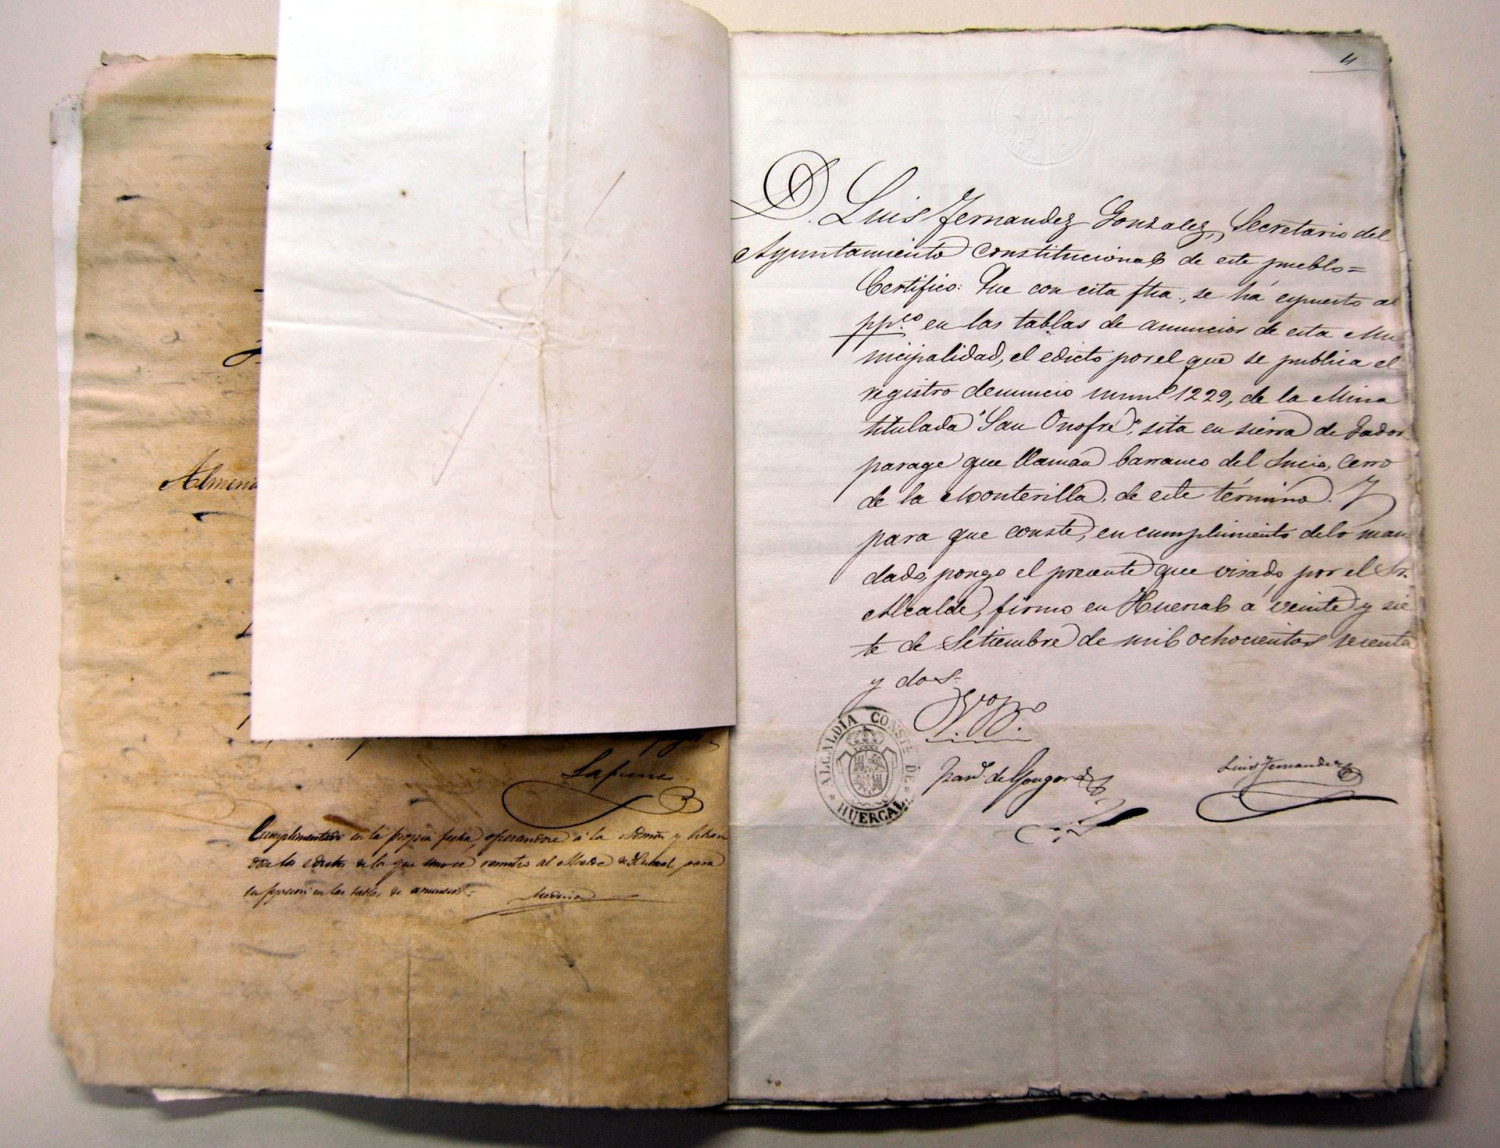 Almería
Lafuene
Cumplimentado en la propia fecha, oficiandose á la Admon y libran
dose los edictos de los que uno se remite al Alcalde de Huercal, para
su fijacion en las tablas de anuncios.
Medina
4
D. Luis Fernandez Gonzalez, Secretario del
Ayuntamiento constitucional de este pueblo=
Certifico: Que con esta fha., se há espuesto al
ppco. en las tablas de anuncios de esta Mu
nicipalidad, el edicto por el que se publica el
registro denuncio numº 1229, de la Mina
titulada "San Onofre", sita en sierra de Gador
parage que llaman barranco del Sucia, Cerro
de la Monterilla, de este término. Y
para que conste, en cumplimiento de lo man
dado, pongo el presente que visado, por el Sr.
Alcalde, firmo en Huercal á veinte y sie
te de Setiembre de mil ochocientos setenta
y dos.
Vº Bº
ALCALDIA CONSTL. DE HUERCAL
Franco. de Gongora
Luis Fernandez